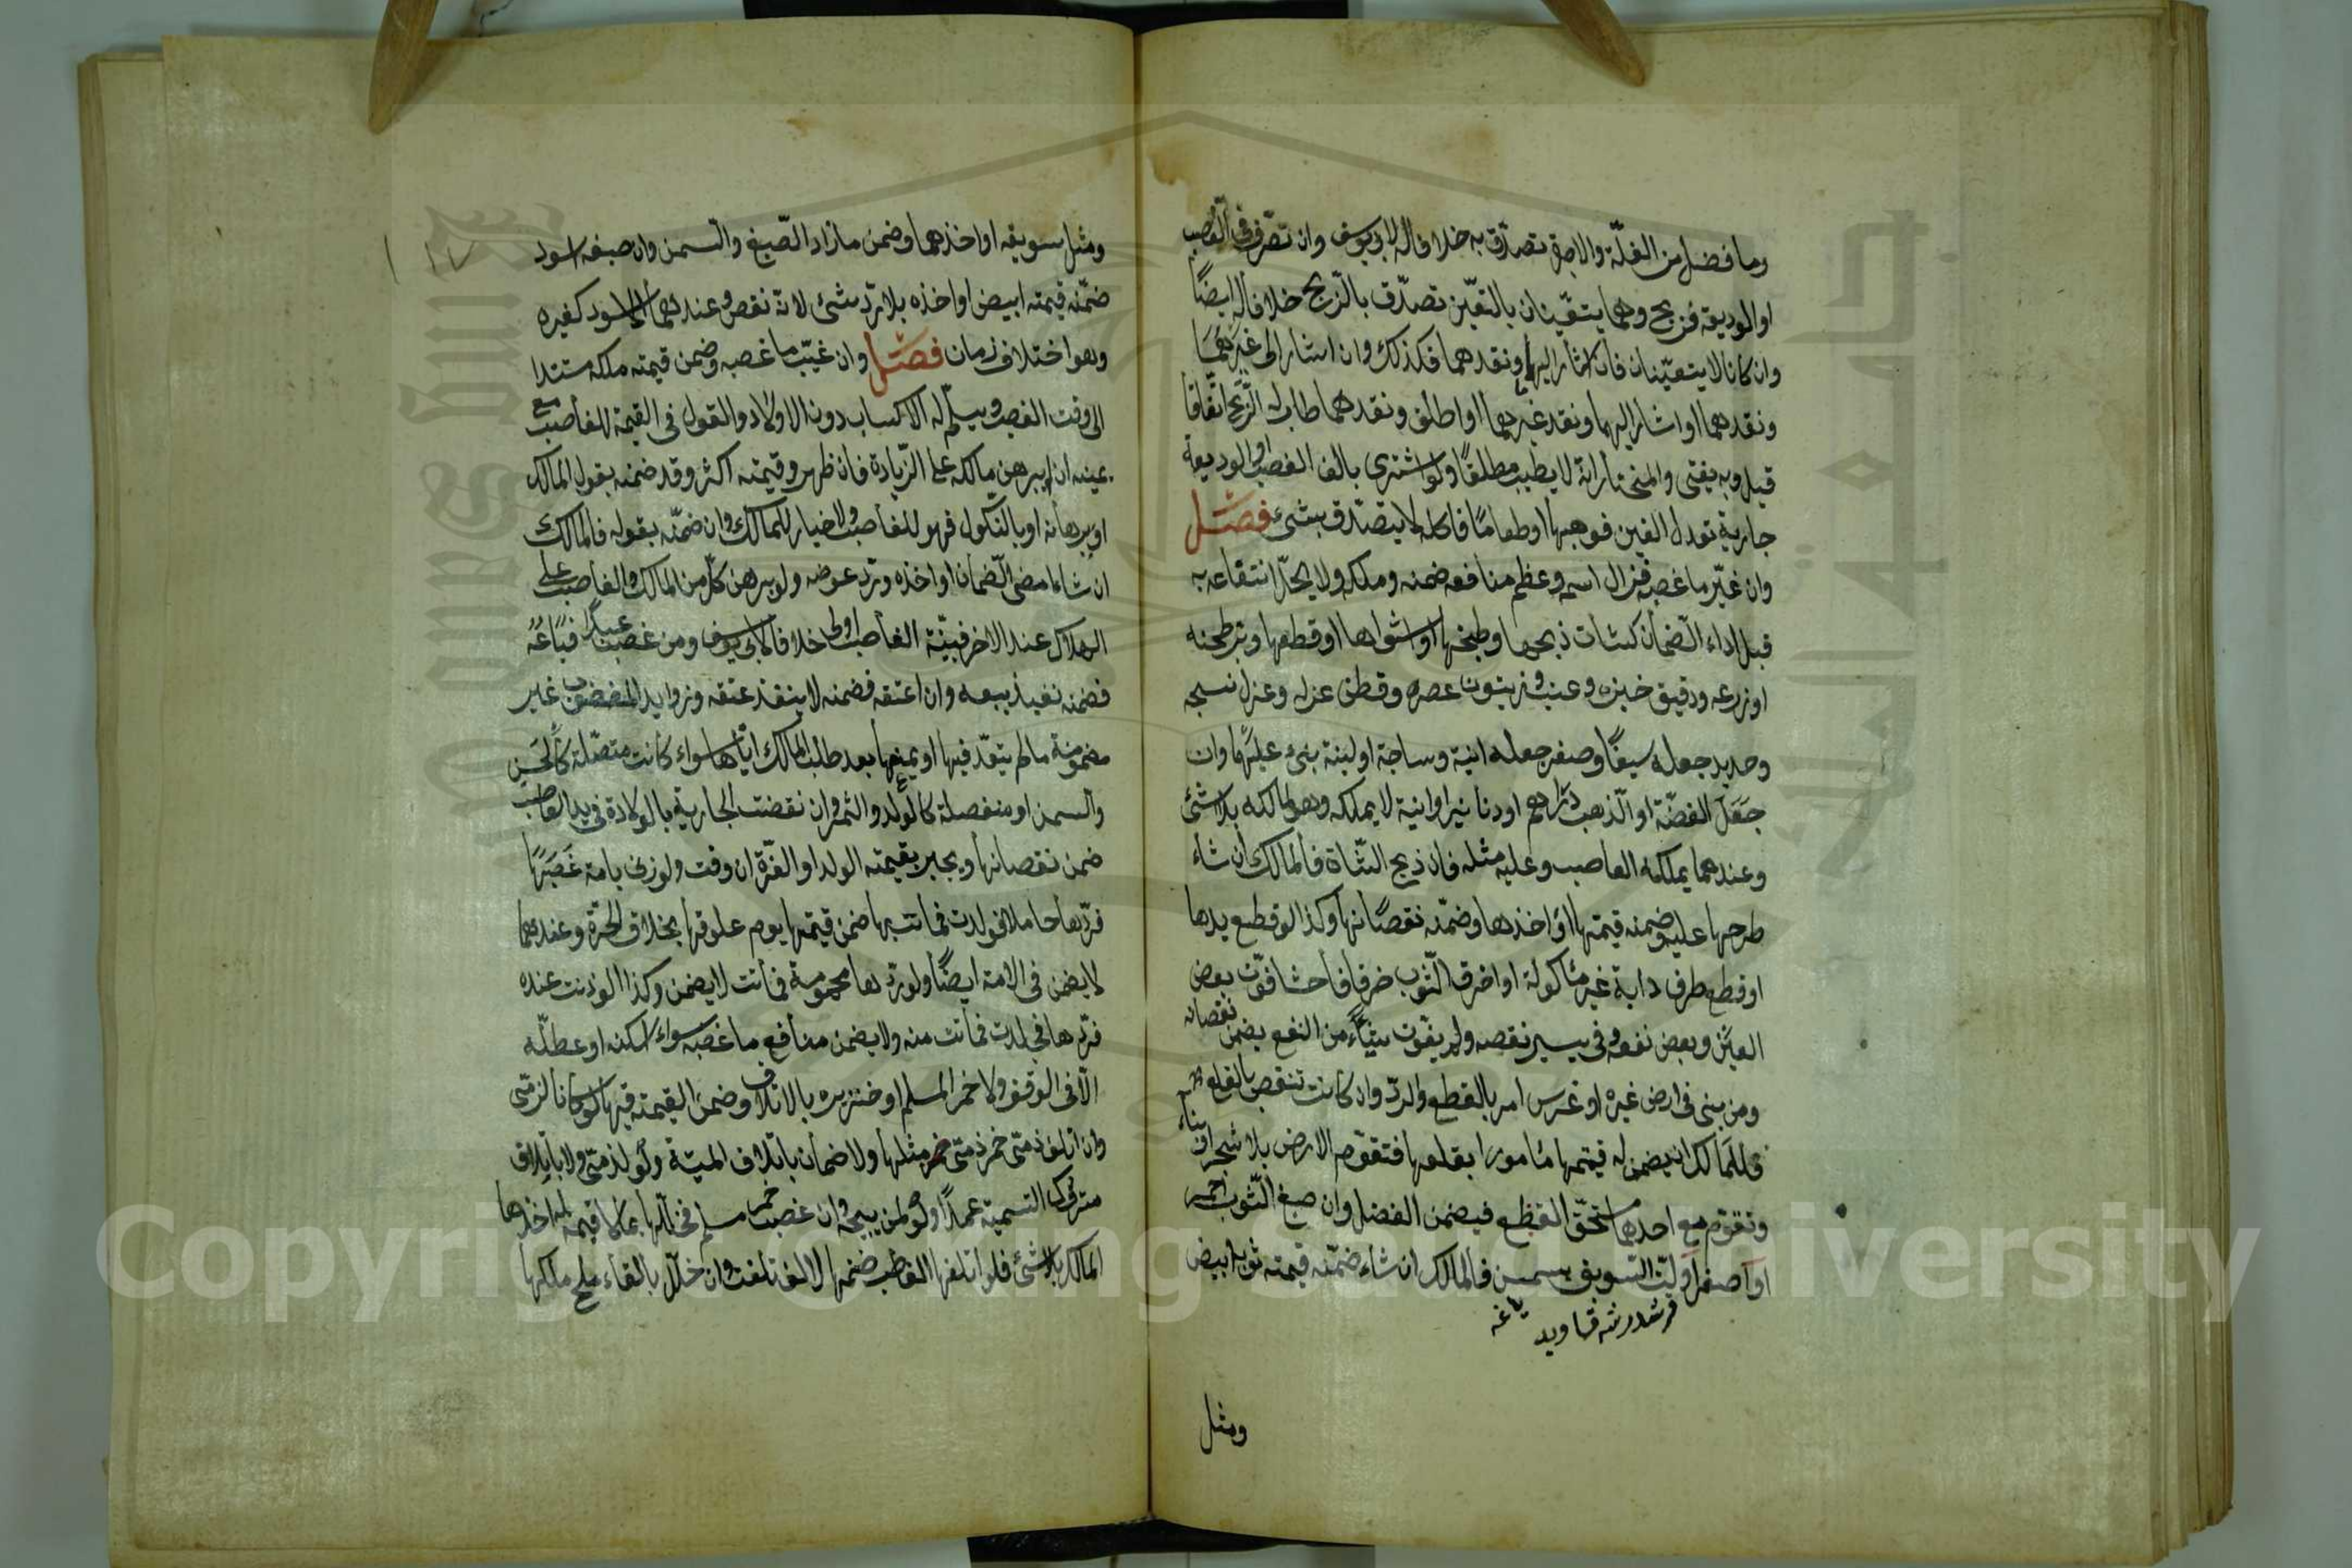 وما فضل من الغلّة والاجرة تصدّق به خلافا له لابي يوسف وان تصرّف في الغصب
او الوديعة فربح وهما يتعيّنان بالتعيّن تصدّق بالرّبح خلافا له ايضًا
وان كانا لا يتعيّنان فان اشار اليهما ونقدهما فكذلك وان اشار الى غيرهما
ونقدهما او اشار اليهما ونقد غيرهما او اطلق ونقدهما طاب له الرّبح اتّفاقا
قيل وبه يفتى والمختار انّه لا يطيب مطلقًا ولو اشترى بالف الغصب او الوديعة
جارية تعدل الفين فوهبها او طعامًا فاكله لا يتصدّق بشئ فصل
وان غيّر ما غصبه فزال اسمه وعظم منافعه ضمنه وملكه ولا يحلّ انتفاعه به
قبل اداء الضّمان كشاة ذبحها وطبخها او شواها او قطعها وبرّ طحنه
او زرعه ودقيق خبزه وعنب وزيتون عصره وقطن غزله وغزل نسجه
وحديد جعله سيفًا وصفر جعله انية وساجة او لبنة بنى عليها وان
جعل الفضّة او الذهب دراهم او دنانير او انية لا يملكه وهو لمالكه بلا شئ
وعندهما يملكه الغاصب وعليه مثله فان ذبح الشّاة فالمالك ان شاء
طرحها عليه وضمنه قيمتها او اخذها وضمّنه نقصانها وكذا لو قطع يدها
او قطع طرف دابة غير مأكولة او اخرق الثّوب خرقا فاحشا فوّت بعض
العين وبعض نفعه وفي يسير نقصه ولم يفوّت شيئًا من النفع يضمن نقصانه
ومن بنى في ارض غيره او غرس امر بالقطع والردّ وان كانت تنقص بالقلع
فللمالك ان يضمن له قيمتها مأمورا بقلعها فتقوّم الارض بلا شجر او بناء
وتقوّم مع احدهما مستحقّ القطع فيضمن الفضل وان صبغ الثّوب احمر
او اصفر او لتّ السّويق بسمن فالمالك ان شاء ضمّنه قيمة ثوبه ابيض
ومثل
ومثل سويقه او اخذهما وضمن ما زاد الصّبغ والسمن وان صبغه اسود
ضمّنه قيمته ابيض او اخذه بلا ردّ شئ لانّه نقص وعندهما الاسود كغيره
وهو اختلاف زمان فصل وان غيّب ما غصبه وضمن قيمته ملكه مستندا
الى وقت الغصب ويسلّم له الاكساب دون الاولاد والقول في القيمة للغاصب مع
يمينه ان لم يبرهن مالكه على الزّيادة فان ظهر وقيمته اكثر وقد ضمنه بقول المالك
او ببرهانه او بالنّكول فهو للغاصب ولا خيار للمالك وان ضمنّه بقوله فالمالك
ان شاء امضى الضّمان او اخذه وردّ عوضه ولو برهن كلّ من المالك والغاصب على
الهلاك عند الاخر فبيّنة الغاصب اولى خلافا لابي يوسف ومن غصب عبدًا فباعه
فضمنه نفيذ بيعه وان اعتقه فضمنه لا ينفذ عتقه وزوايد المغصوب غير
مضمونة ما لم يتعدّ فيها او يمنعها بعد طلب المالك ايّاها سواء كانت متصّلة كالحسن
والسمن او منفصلة كالولد والثمر وان نقصت الجارية بالولادة في يد الغاصب
ضمن نقصانها ويجبر بقيمته الولد او الغرّة ان وفت ولو زنى بامة غصبها
فردّها حاملا فولدت فماتت بها ضمن قيمتها يوم علوقها بخلاف الحرّة وعندهما
لا يضمن في الامة ايضًا ولو ردّها محمومة فماتت لا يضمن وكذا لو زنت عنده
فردّها فجلدت فماتت منه ولا يضمن منافع ما غصبه سواء سكنه او عطّله
الّا في الوقف ولا خمر المسلم او خنزيره بالاتلاف وضمن القيمة فيها لو كانا لذمّى
وان اتلف ذمّى خمر ذمّى خمر مثلها ولا ضمان باتلاف الميتة ولو لذمّى ولا باتلاف
متروك التسمية عمدًا ولو لمن يبيحه وان غصب خمر مسلم فخلّلها بما لا قيمة له اخذها
المالك بلا شئ فلو اتلفها الغاصب ضمنها لا لو تلفت وان خلّل بالقاء ملح ملكها